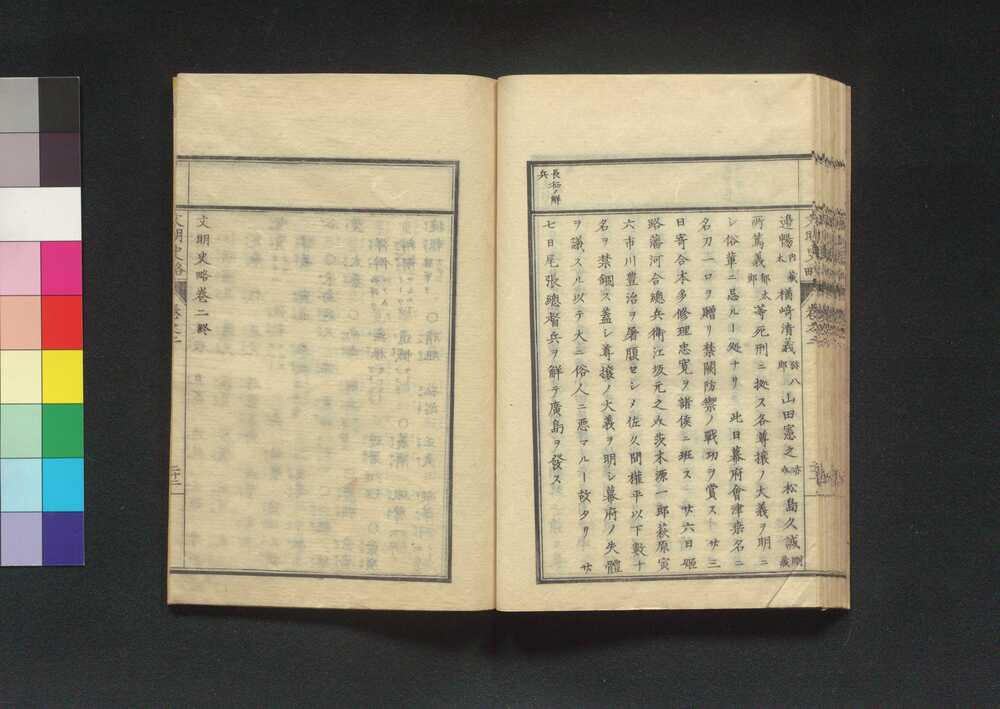 長征ノ解兵
邉暢 内藏太 楢﨑清義 弥八郎 山田憲之 亦介 松島久誠 剛藏
所篤義 郁太郎 等死刑ニ拠ス各尊攘ノ大義ヲ明ニ
シ俗輩ニ忌ルヽ処ナリ 此日幕府會津桒名ニ
名刀一口ヲ贈リ禁闕防禦ノ戰功ヲ賞ス 廿三
日寄合本多修理忠寛ヲ諸侯ニ班ス 廿六日姫
路藩河合總兵衛江坂元之助茨木源一郎萩原寅
六市川豊治ヲ屠腹セシメ佐久間權平以下數十
名ヲ禁錮ス蓋シ尊攘ノ大義ヲ明シ幕府ノ失體
ヲ議スルヲ以テ大ニ俗人ニ悪マルヽ故タリ 廿
七日尾張總督兵ヲ解テ廣島ヲ發ス
文明史略卷二終
文明史略
卷之二
三十二